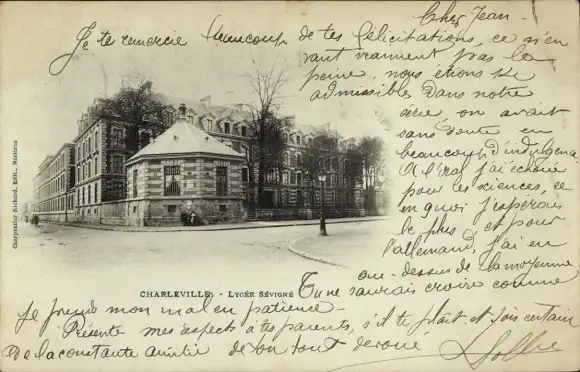 Cher Jean -
Je te remercie beaucoup de tes félicitations, ce n'en
vaut vraiment pas la
peine, nous étions
admissibles dans notre
série on avait
sans doute eu
beaucoup d'indulgence
A l'oral j'ai échoué
pour les sciences, ce
en quoi j'espérais
le plus et pour
l'allemand, j'ai eu
au-dessus de la moyenne
Tu ne saurais croire comme
je prends mon mal en patience -
Présente mes respects à tes parents, s'il te plaît et sois certain
de la constante amitié de ton tout dévoué
CHARLEVILLE - LYCÉE SÉVIGNÉ
Charpentier Richard, Edit., Mézières